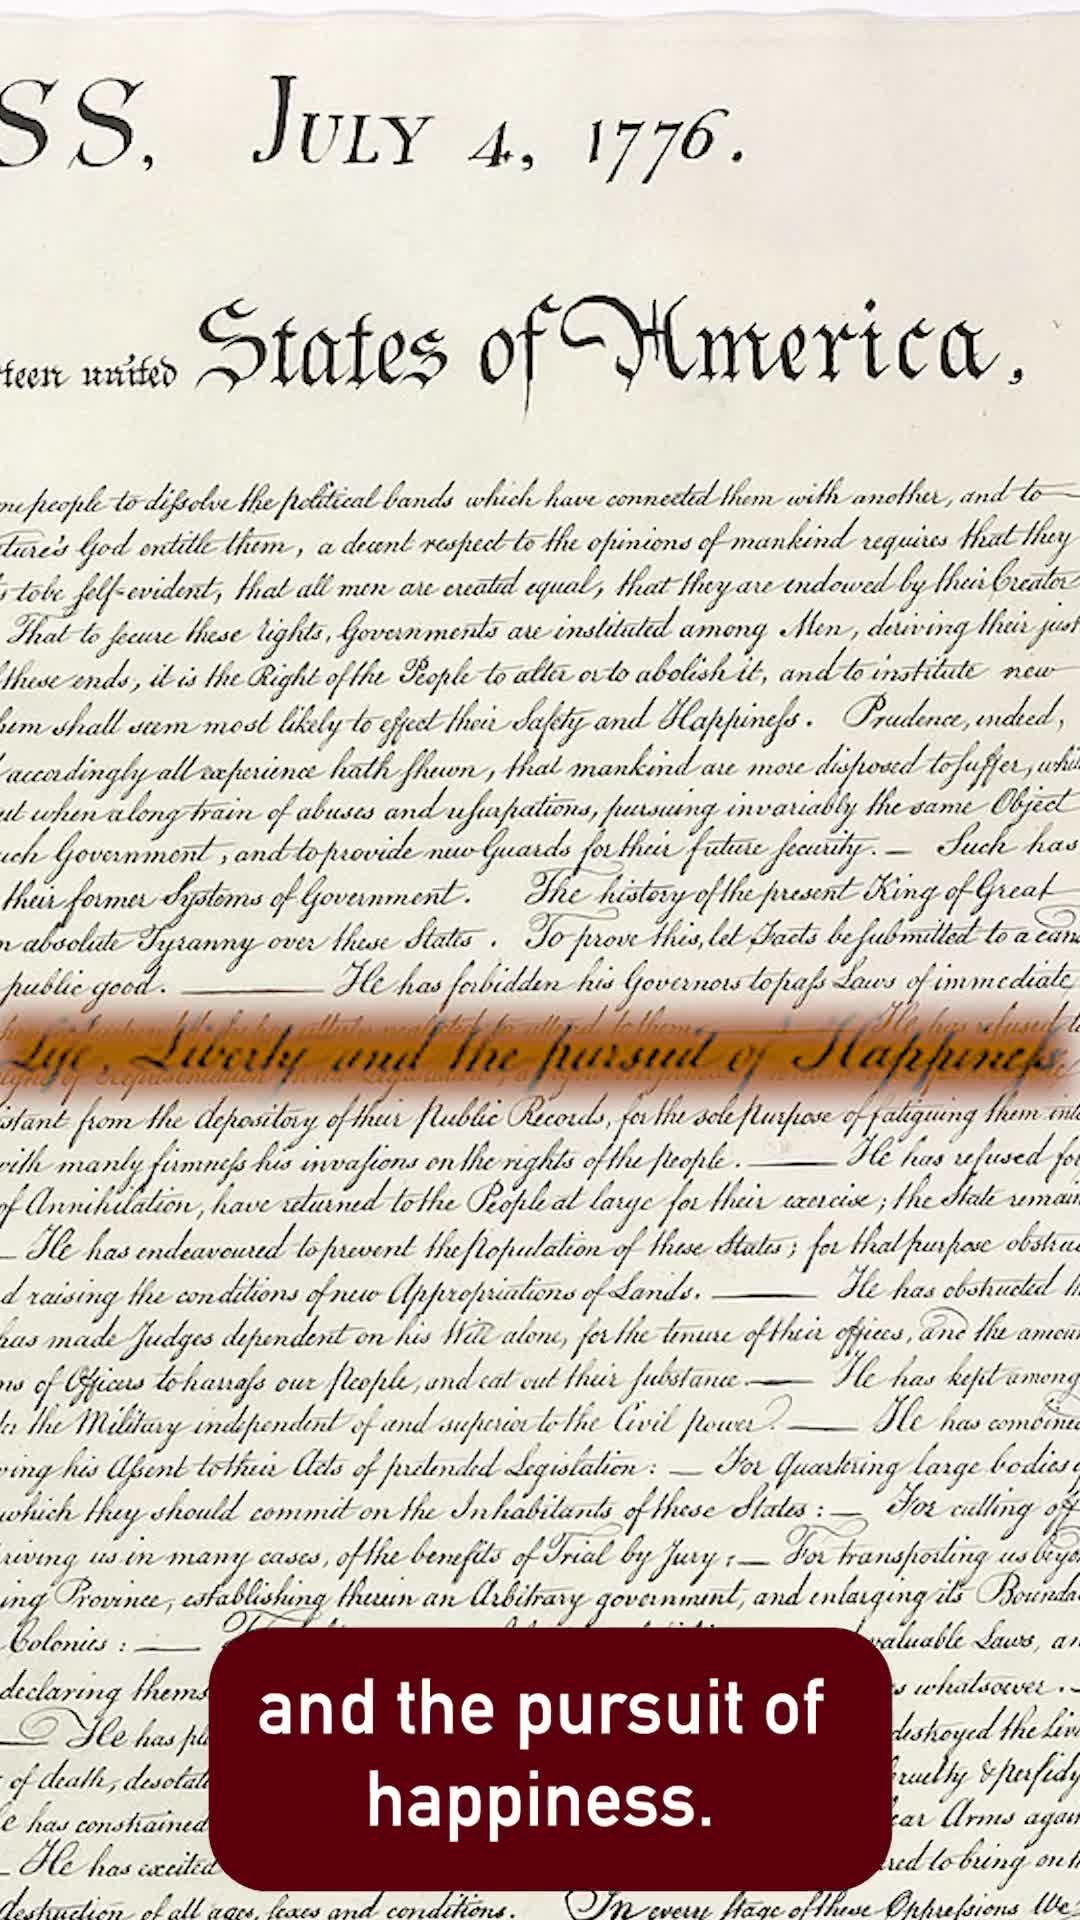 SS, JULY 4, 1776.
teen united States of America,
people to dissolve the political bands which have connected them with another, and to
ture's God entitle them, a decent respect to the opinions of mankind requires that they
to be self-evident, that all men are created equal, that they are endowed by their Creator
That to secure these rights, Governments are instituted among Men, deriving their just
these ends, it is the Right of the People to alter or to abolish it, and to institute new
hem shall seem most likely to effect their Safety and Happiness. Prudence, indeed,
accordingly all experience hath shewn, that mankind are more disposed to suffer, whil
ut when a long train of abuses and usurpations, pursuing invariably the same Object
uch Government, and to provide new Guards for their future security. — Such has
their former Systems of Government. The history of the present King of Great
n absolute Tyranny over these States. To prove this, let Facts be submitted to a can
public good. — He has forbidden his Governors to pass Laws of immediate
He has refused to
Life, Liberty and the pursuit of Happiness
istant from the depository of their Public Records, for the sole purpose of fatiguing them into
with manly firmness his invasions on the rights of the people. — He has refused for
of Annihilation, have returned to the People at large for their exercise; the State remain
— He has endeavoured to prevent the Population of these States; for that purpose obstruc
d raising the conditions of new Appropriations of Lands. — He has obstructed th
has made Judges dependent on his Will alone, for the tenure of their offices, and the amoun
ms of Officers to harrass our People, and eat out their substance. — He has kept among
the Military independent of and superior to the Civil power. — He has combined
ving his Assent to their Acts of pretended Legislation: — For Quartering large bodies o
which they should commit on the Inhabitants of these States: — For cutting off
riving us in many cases, of the benefits of Trial by Jury: — For transporting us beyon
ing Province, establishing therein an Arbitrary government, and enlarging its Boundar
Colonies: — valuable Laws, an
declaring thems s whatsoever. —
— He has plu destroyed the Live
of death, desolati ruelty & perfidy
e has constrained ear Arms again
— He has excited red to bring on th
destruction of all ages, sexes and conditions. In every stage of these Oppressions We
and the pursuit of
happiness.